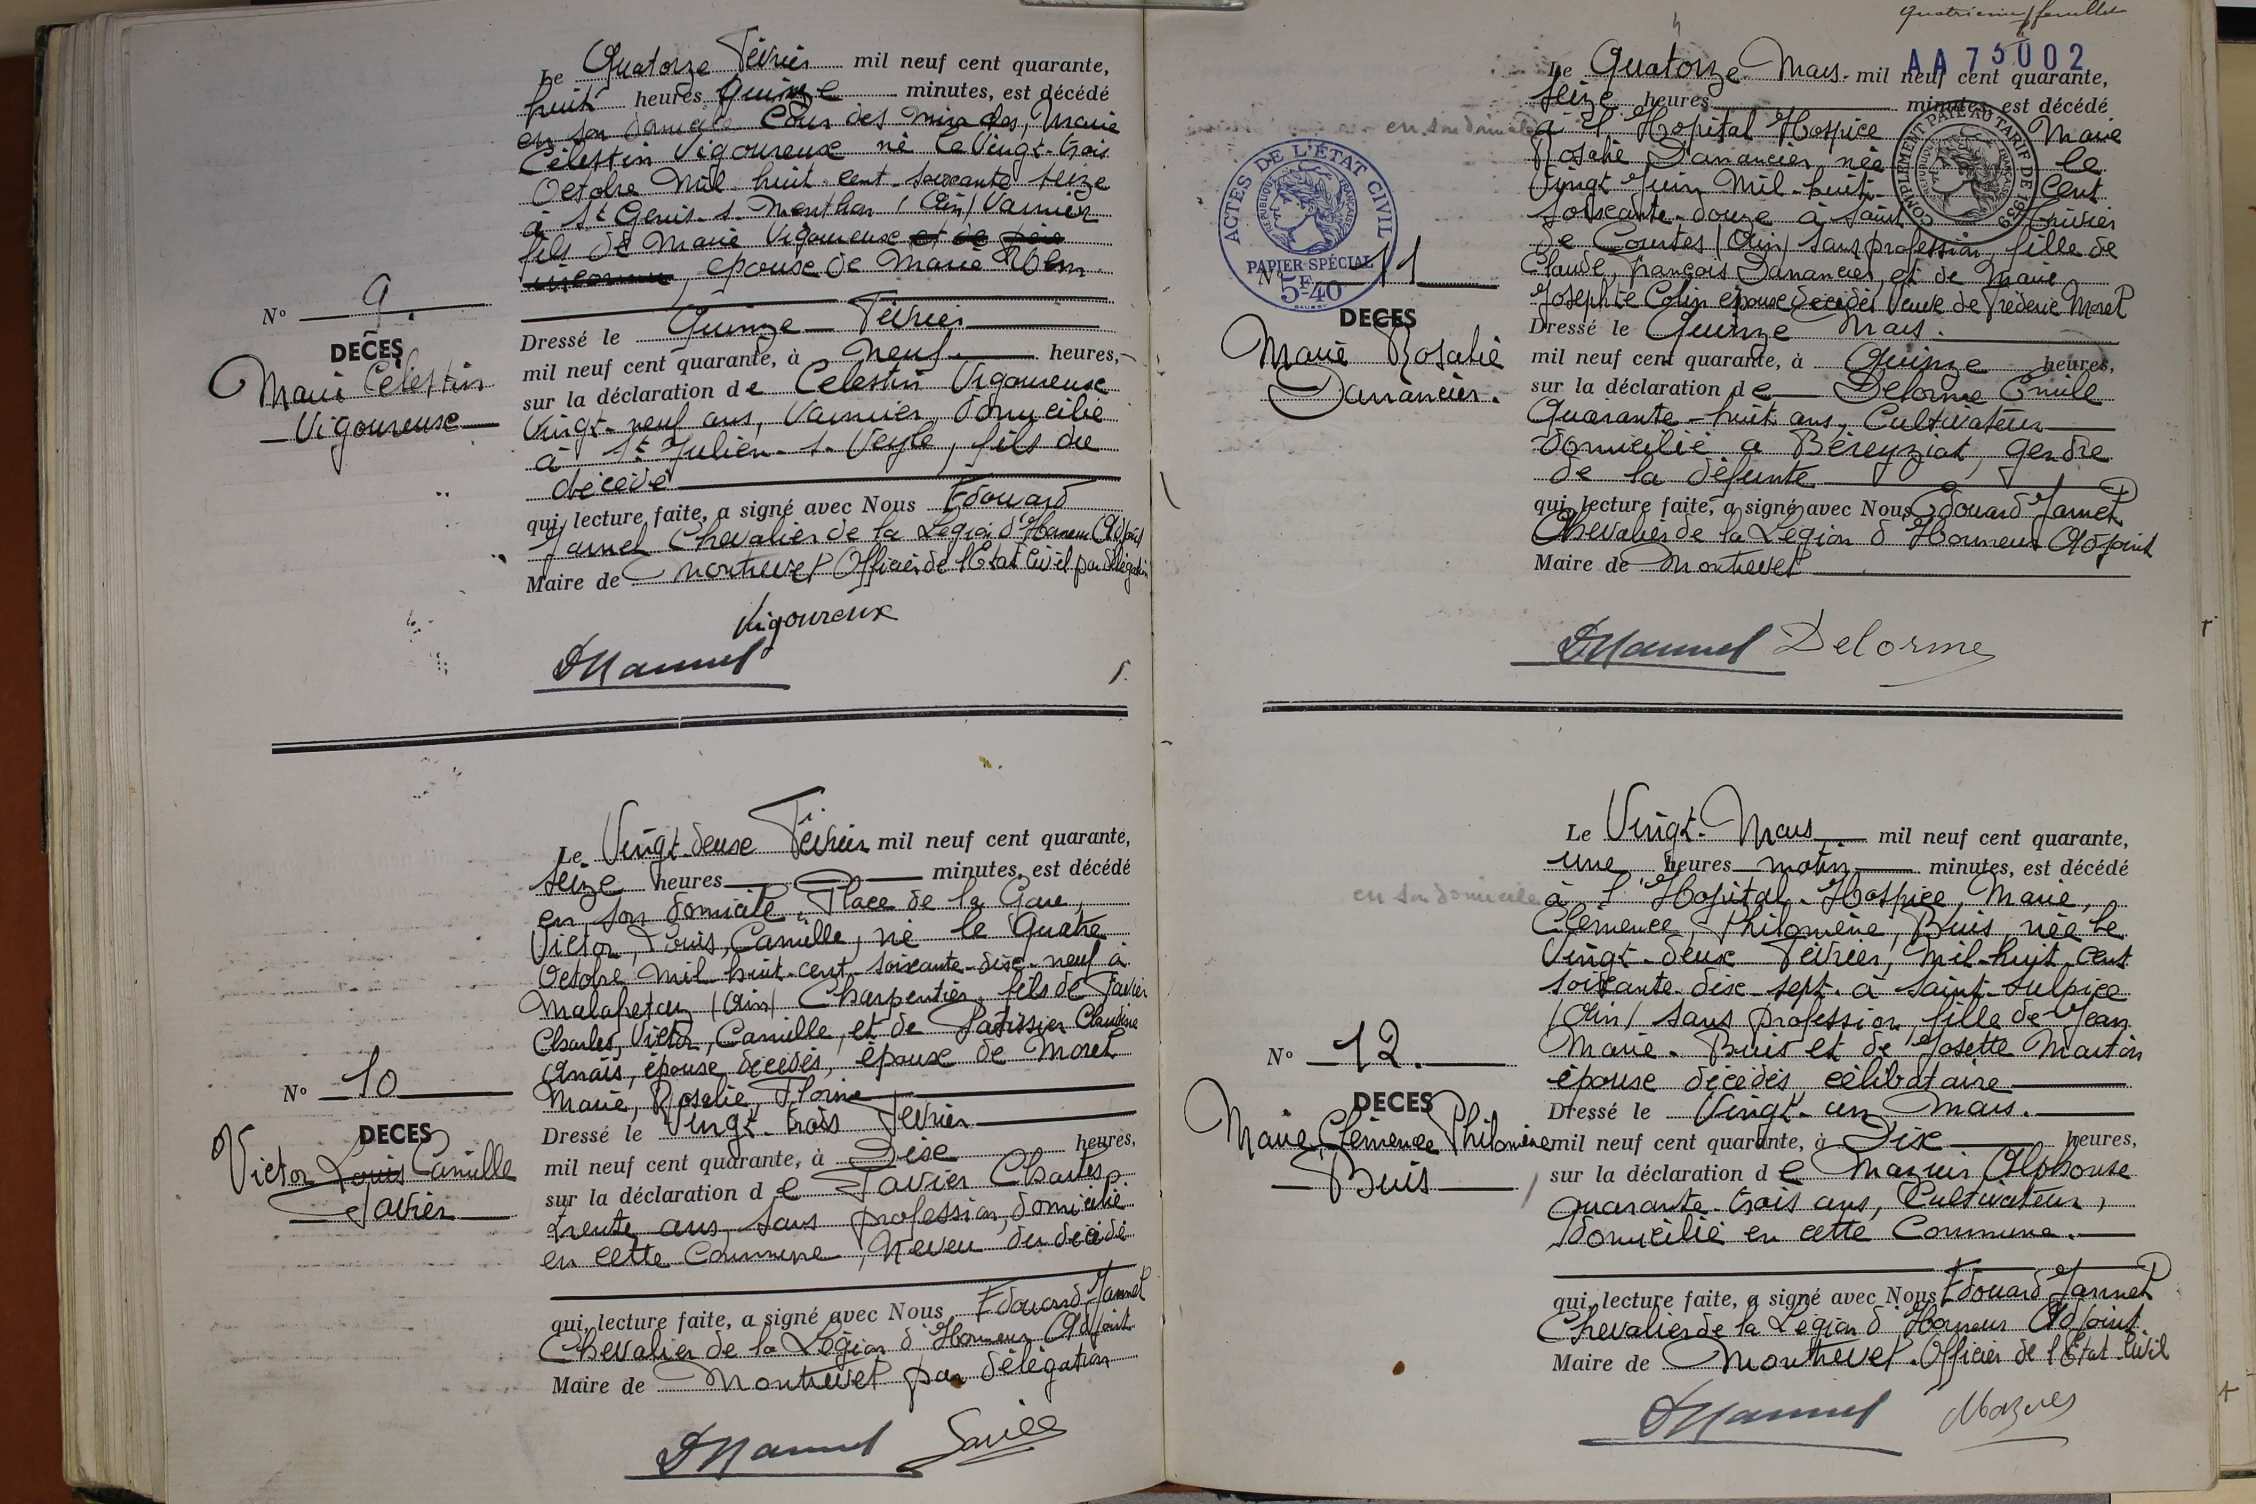 Le Quatorze Février mil neuf cent quarante,
huit heures quinze minutes, est décédé
en son domicile Cour des, Marie
Célestin Vigoureux né le Vingt-trois
Octobre Mil huit-cent-soixante seize
à St Genis-s-Menthon (Ain) Vannier
fils de Marie Vigoureux et de père
inconnu, époux de Marie
N° 9.
DECES
Marie Célestin
Vigoureux
Dressé le Quinze Février
mil neuf cent quarante, à Neuf heures,
sur la déclaration de Célestin Vigoureux
Vingt-neuf ans, Vannier, domicilié
à St Julien-s-Veyle, fils du
décédé
qui, lecture faite, a signé avec Nous Edouard
Jannet Chevalier de la Légion d'Honneur Adjoint
Maire de Montrevel Officier de l'Etat Civil par délégation
Vigoureux
Le Vingt-deux Février mil neuf cent quarante,
seize heures minutes, est décédé
en son domicile, Place de la Gare,
Victor, Louis, Camille, né le Quatre
Octobre Mil huit-cent-soixante-dix-neuf à
Malafretaz (Ain) Charpentier, fils de Favier
Charles, Victor, Camille, et de Patissier Claudine
Anaïs, épouse décédés, époux de Morel
Marie, Rosalie, Florine
N° 10
DECES
Victor Louis Camille
Favier
Dressé le Vingt-trois Février
mil neuf cent quarante, à Dix heures,
sur la déclaration de Favier Charles
trente ans, sans profession, domicilié
en cette Commune, Neveu du décédé
qui, lecture faite, a signé avec Nous Edouard Jannet
Chevalier de la Légion d'Honneur Adjoint
Maire de Montrevel par délégation
Quatrième feuillet
AA 75002
Le Quatorze Mars mil neuf cent quarante,
seize heures minutes, est décédé
en son domicile à l'Hopital Hospice Marie
Rosalie Danancier, née le
Vingt Juin Mil-huit-Cent
soixante-douze à Saint Trivier
de Courtes (Ain) sans profession, fille de
Claude, François Danancier, et de Marie
Josephte Colin épouse décédés Veuve de Frédéric Morel
COMPLEMENT PAYE AU TARIF DE 1939
REPUBLIQUE FRANÇAISE
ACTES DE L'ÉTAT CIVIL
REPUBLIQUE FRANÇAISE
PAPIER SPÉCIAL
5F40
N° 11
DECES
Marie Rosalie
Danancier.
Dressé le Quinze Mars.
mil neuf cent quarante, à Quinze heures,
sur la déclaration de Delorme Emile
Quarante-huit ans, Cultivateur
domicilié à Béreyziat, gendre
de la défunte
qui, lecture faite, a signé avec Nous Edouard Jannet
Chevalier de la Légion d'Honneur Adjoint
Maire de Montrevel
Delorme
Le Vingt-Mars mil neuf cent quarante,
une heures matin minutes, est décédé
en son domicile à l'Hopital-Hospice, Marie,
Clémence, Philomène, Buis, née le
Vingt-deux Février, Mil-huit-cent
soixante-dix-sept à Saint-Sulpice
(Ain) sans profession, fille de Jean
Marie Buis et de Josette Martin
épouse décédés célibataire
N° 12.
DECES
Marie Clémence Philomène
Buis
Dressé le Vingt-un Mars.
mil neuf cent quarante, à Dix heures,
sur la déclaration de Mazuir Alphonse
quarante-trois ans, Cultivateur,
domicilié en cette Commune.
qui, lecture faite, a signé avec Nous Edouard Jannet
Chevalier de la Légion d'Honneur Adjoint
Maire de Montrevel Officier de l'Etat Civil